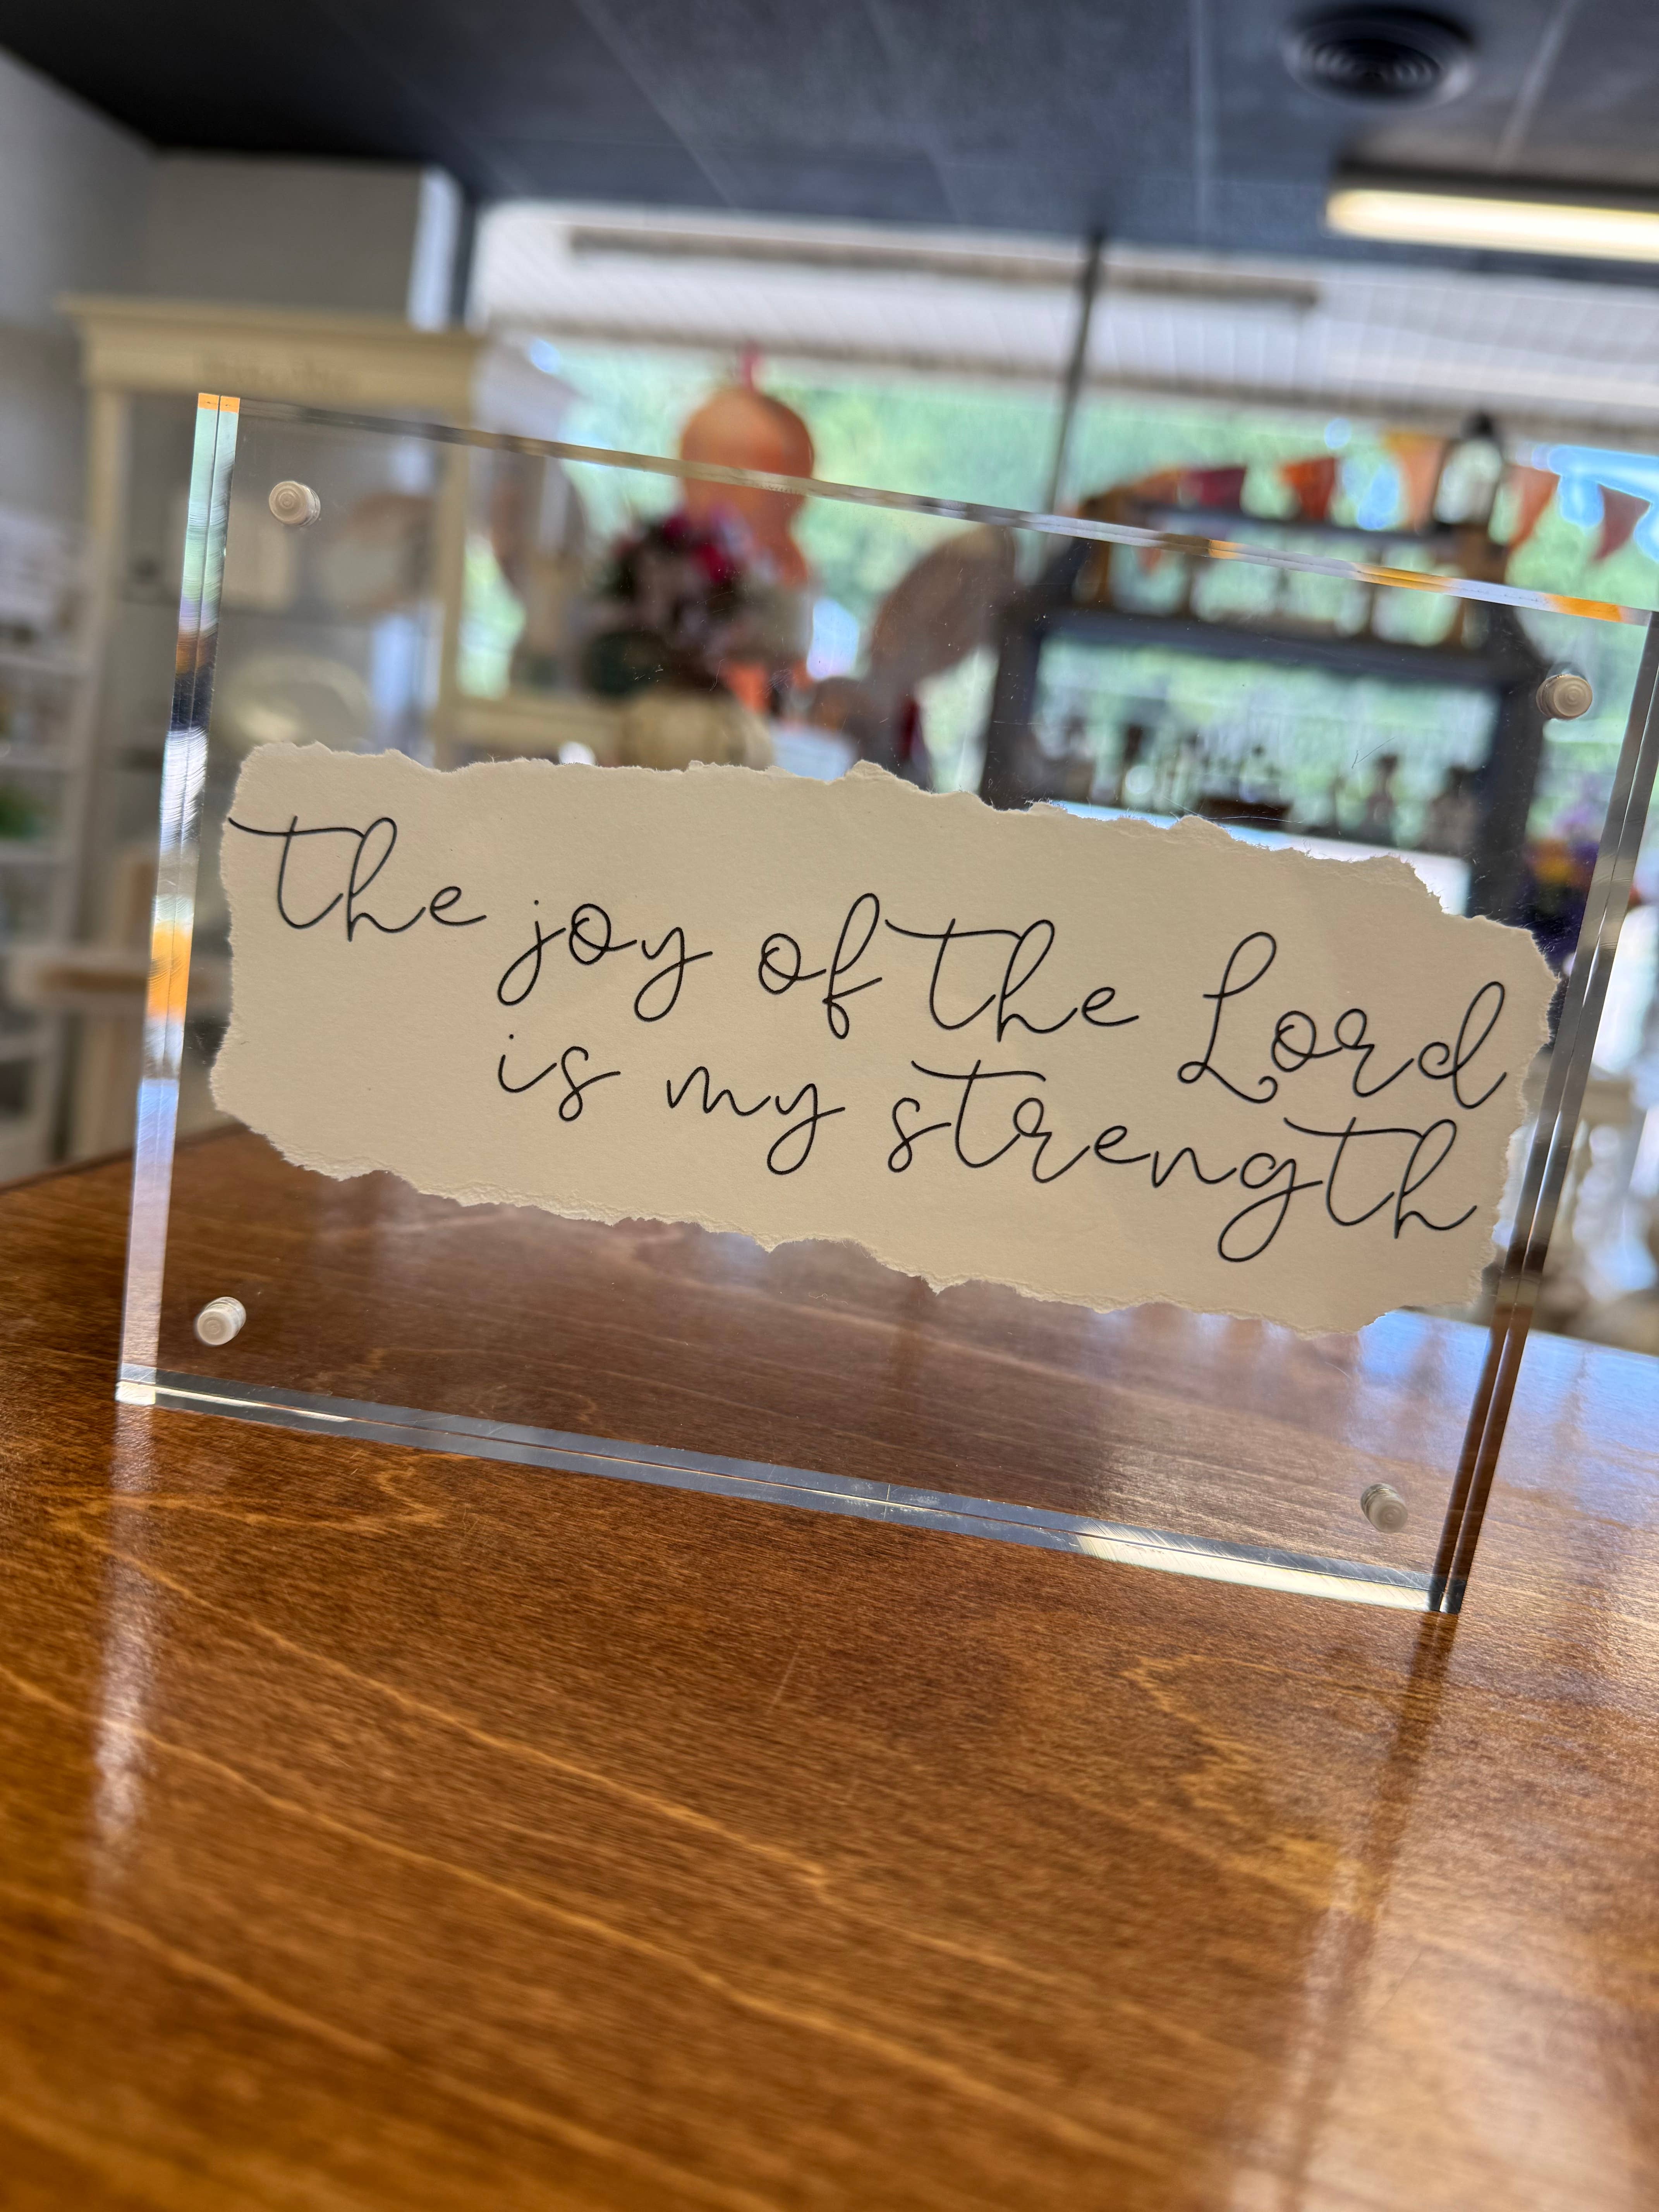 the joy of the Lord
is my strength